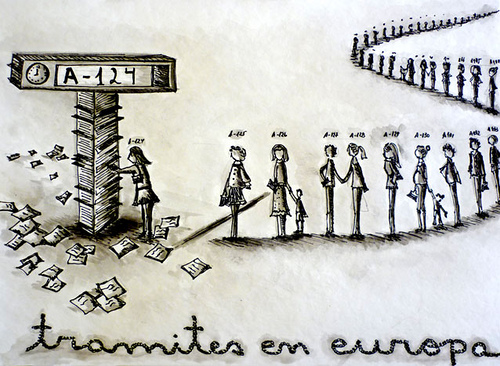 A-124
A-124
A-125 A-126 A-127 A-128 A-129 A-130 A-131 A-132
tramites en europa